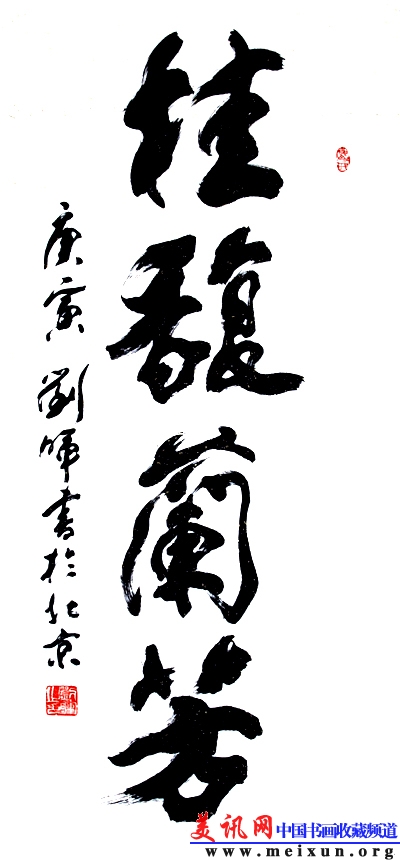 桂馥蘭芳
庚寅劉暉書於北京
美讯网 中国书画收藏频道
www.meixun.org